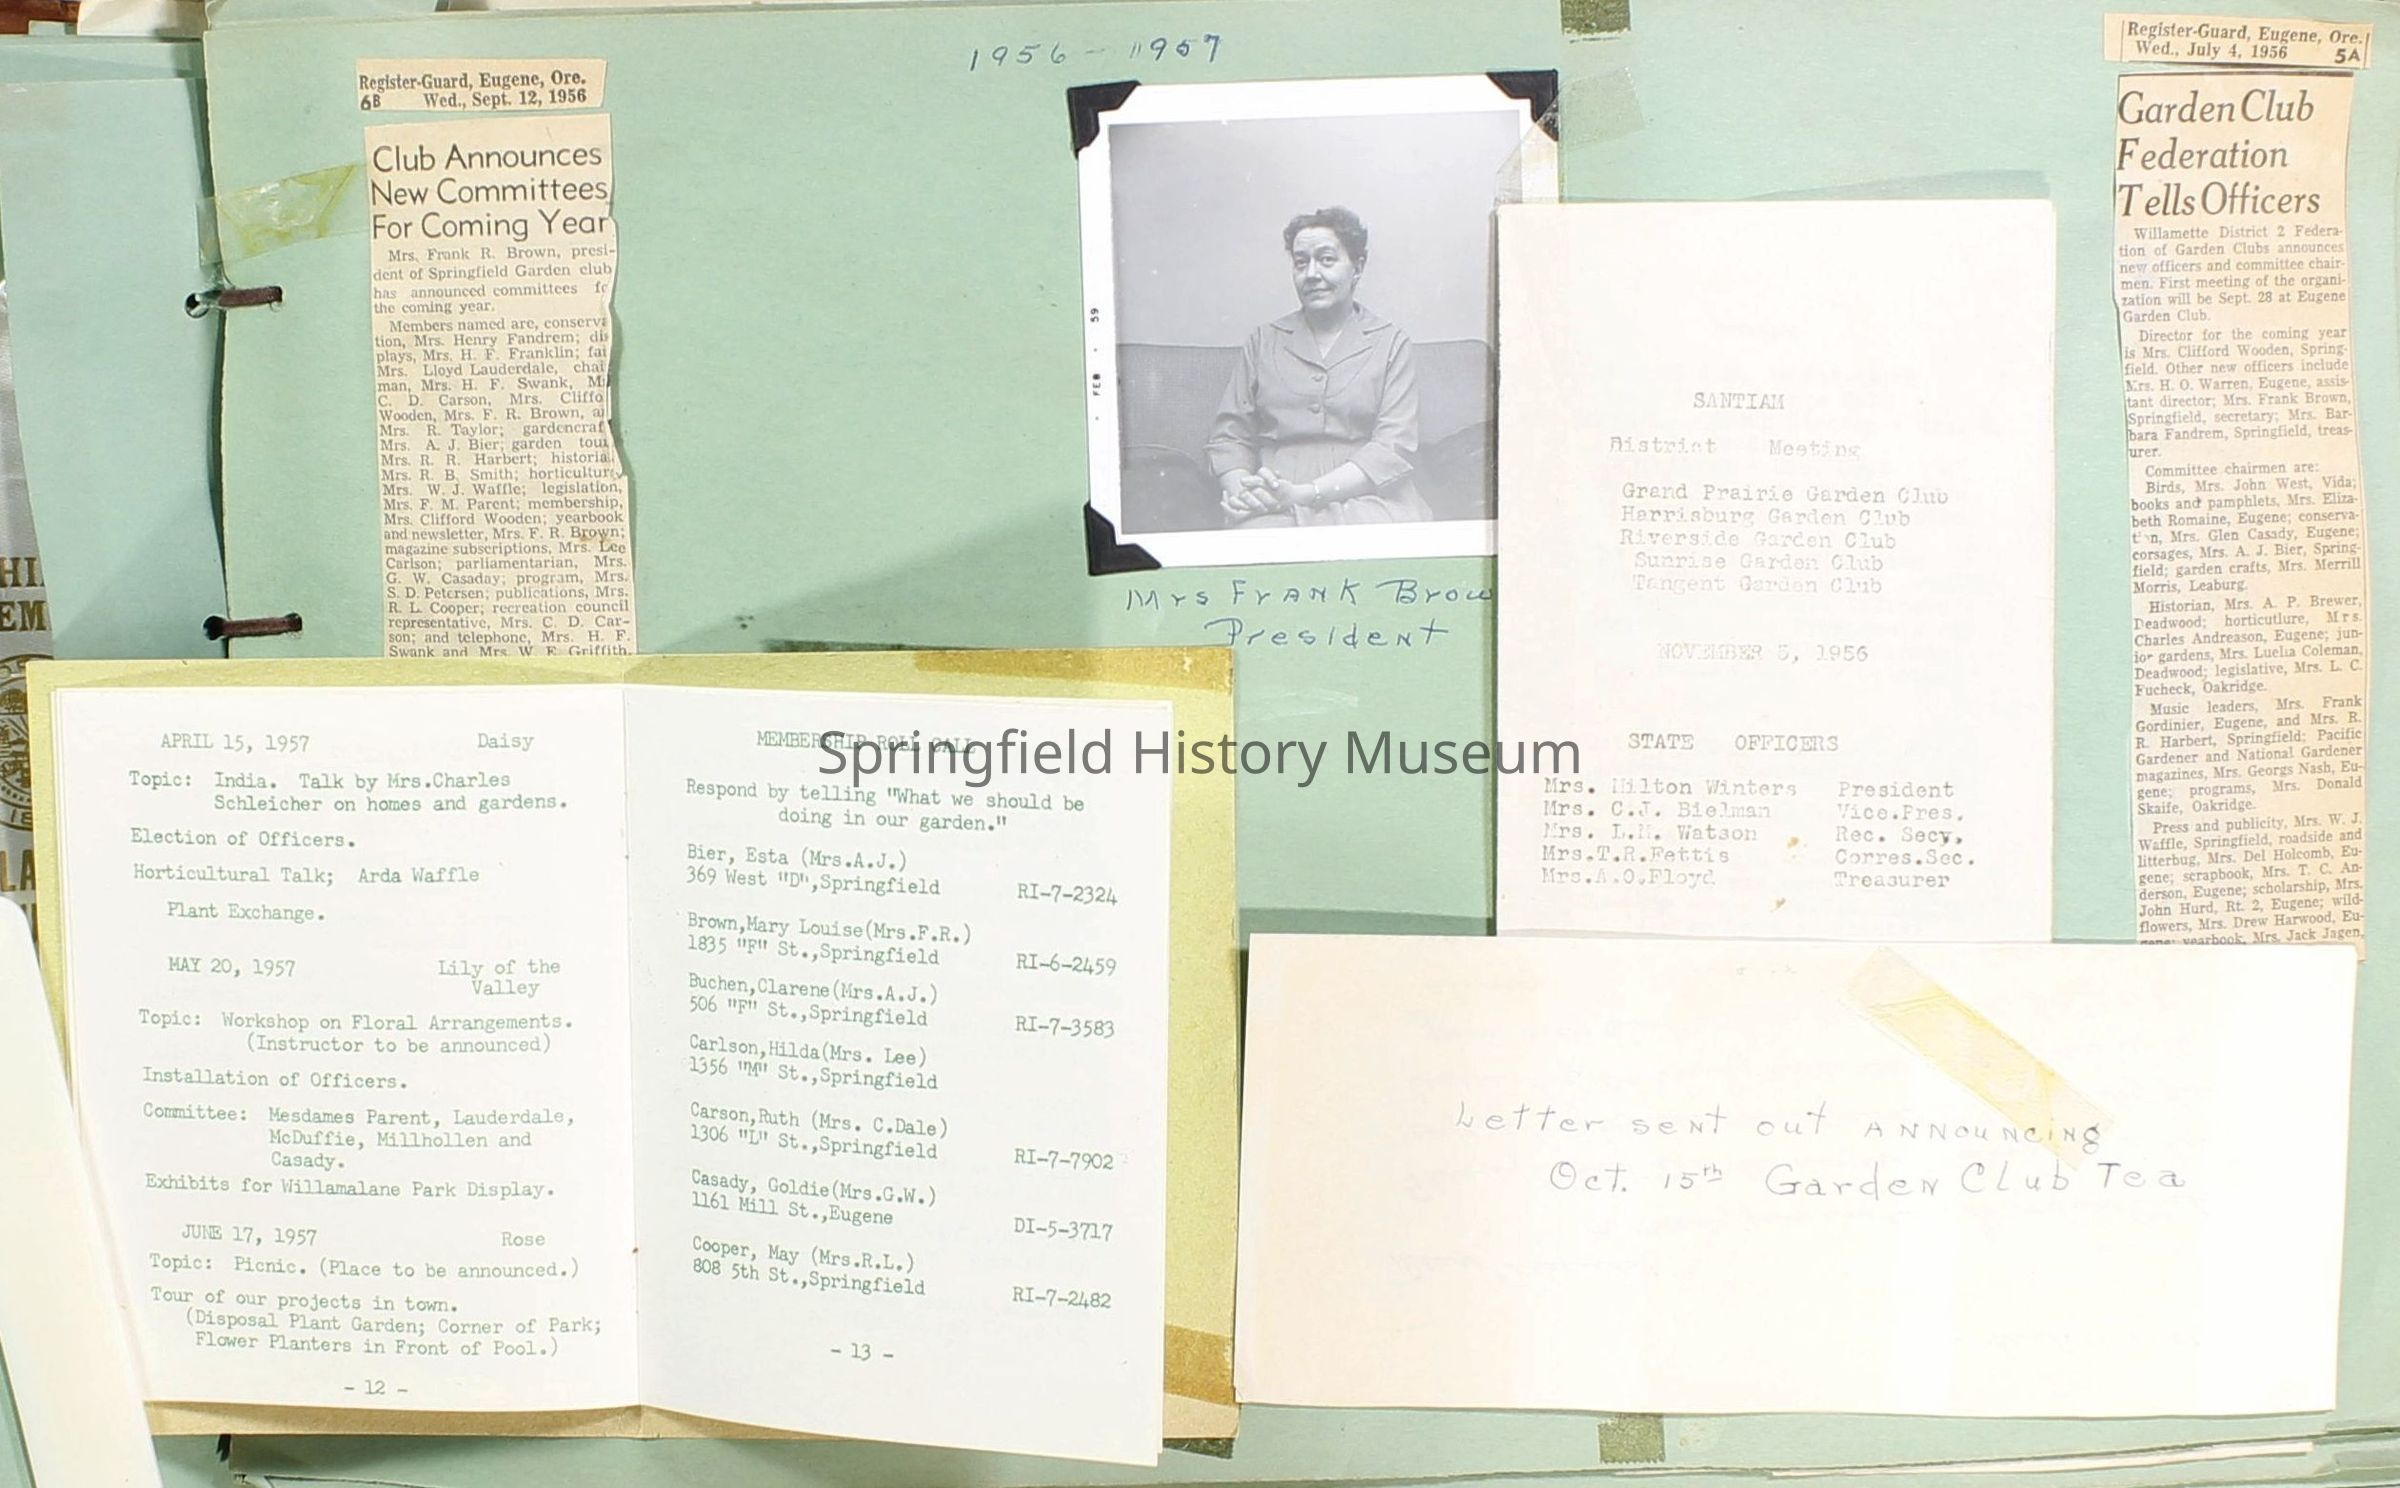 1956 - 1957
Register-Guard, Eugene, Ore.
6B Wed., Sept. 12, 1956
Club Announces
New Committees
For Coming Year
Mrs. Frank R. Brown, presi-
dent of Springfield Garden club
has announced committees
the coming year.
Members named are, conserva
tion, Mrs. Henry Fandrem; dis
plays, Mrs. H. F. Franklin; fai
Mrs. Lloyd Lauderdale, chai
man, Mrs. H. F. Swank, M
C. D. Carson, Mrs. Cliffo
Wooden, Mrs. F. R. Brown, a
Mrs. R. Taylor; gardencraf
Mrs. A. J. Bier; garden tour
Mrs. R. R. Harbert; historia
Mrs. R. B. Smith; horticulture
Mrs. W. J. Waffle; legislation,
Mrs. F. M. Parent; membership,
Mrs. Clifford Wooden; yearbook
and newsletter, Mrs. F. R. Brown;
magazine subscriptions, Mrs. Lee
Carlson; parliamentarian, Mrs.
G. W. Casaday; program, Mrs.
S. D. Petersen; publications, Mrs.
R. L. Cooper; recreation council
representative, Mrs. C. D. Car-
son; and telephone, Mrs. H. F.
Swank and Mrs. W. E. Griffith.
• FEB • 59
Mrs Frank Brow
President
SANTIAM
District Meeting
Grand Prairie Garden Club
Harrisburg Garden Club
Riverside Garden Club
Sunrise Garden Club
Tangent Garden Club
NOVEMBER 5, 1956
STATE OFFICERS
Mrs. Milton Winters President
Mrs. C.J. Bielman Vice.Pres.
Mrs. L.M. Watson Rec. Secy,
Mrs.T.R.Fettis Corres.Sec.
Mrs.A.O.Floyd Treasurer
Register-Guard, Eugene, Ore.
Wed., July 4, 1956 5A
Garden Club
Federation
Tells Officers
Willamette District 2 Federa-
tion of Garden Clubs announces
new officers and committee chair-
men. First meeting of the organi-
zation will be Sept. 28 at Eugene
Garden Club.
Director for the coming year
is Mrs. Clifford Wooden, Spring-
field. Other new officers include
Mrs. H. O. Warren, Eugene, assis-
tant director; Mrs. Frank Brown,
Springfield, secretary; Mrs. Bar-
bara Fandrem, Springfield, treas-
urer.
Committee chairmen are:
Birds, Mrs. John West, Vida;
books and pamphlets, Mrs. Eliza-
beth Romaine, Eugene; conserva-
tion, Mrs. Glen Casady, Eugene;
corsages, Mrs. A. J. Bier, Spring-
field; garden crafts, Mrs. Merrill
Morris, Leaburg.
Historian, Mrs. A. P. Brewer,
Deadwood; horticutlure, Mrs.
Charles Andreason, Eugene; jun-
ior gardens, Mrs. Luella Coleman,
Deadwood; legislative, Mrs. L. C.
Fucheck, Oakridge.
Music leaders, Mrs. Frank
Gordinier, Eugene, and Mrs. R.
R. Harbert, Springfield; Pacific
Gardener and National Gardener
magazines, Mrs. Georgs Nash, Eu-
gene; programs, Mrs. Donald
Skaife, Oakridge.
Press and publicity, Mrs. W. J.
Waffle, Springfield, roadside and
litterbug, Mrs. Del Holcomb, Eu-
gene; scrapbook, Mrs. T. C. An-
derson, Eugene; scholarship, Mrs.
John Hurd, Rt. 2, Eugene; wild-
flowers, Mrs. Drew Harwood, Eu-
gene; yearbook, Mrs. Jack Jagen,
APRIL 15, 1957 Daisy
Topic: India. Talk by Mrs.Charles
Schleicher on homes and gardens.
Election of Officers.
Horticultural Talk; Arda Waffle
Plant Exchange.
MAY 20, 1957 Lily of the
Valley
Topic: Workshop on Floral Arrangements.
(Instructor to be announced)
Installation of Officers.
Committee: Mesdames Parent, Lauderdale,
McDuffie, Millhollen and
Casady.
Exhibits for Willamalane Park Display.
JUNE 17, 1957 Rose
Topic: Picnic. (Place to be announced.)
Tour of our projects in town.
(Disposal Plant Garden; Corner of Park;
Flower Planters in Front of Pool.)
- 12 -
MEMBERSHIP ROLL CALL
Respond by telling "What we should be
doing in our garden."
Bier, Esta (Mrs.A.J.)
369 West "D",Springfield RI-7-2324
Brown,Mary Louise(Mrs.F.R.)
1835 "F" St.,Springfield RI-6-2459
Buchen,Clarene(Mrs.A.J.)
506 "F" St.,Springfield RI-7-3583
Carlson,Hilda(Mrs. Lee)
1356 "M" St.,Springfield
Carson,Ruth (Mrs. C.Dale)
1306 "L" St.,Springfield RI-7-7902
Casady, Goldie(Mrs.G.W.)
1161 Mill St.,Eugene DI-5-3717
Cooper, May (Mrs.R.L.)
808 5th St.,Springfield RI-7-2482
- 13 -
Springfield History Museum
Letter sent out announcing
Oct. 15th Garden Club Tea